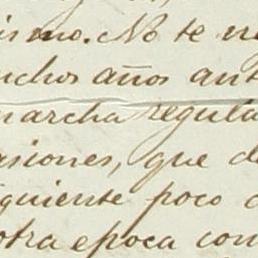 ismo. No te
uchos años ant
marcha regula
asiones, que de
iguiente poco
otra epoca con